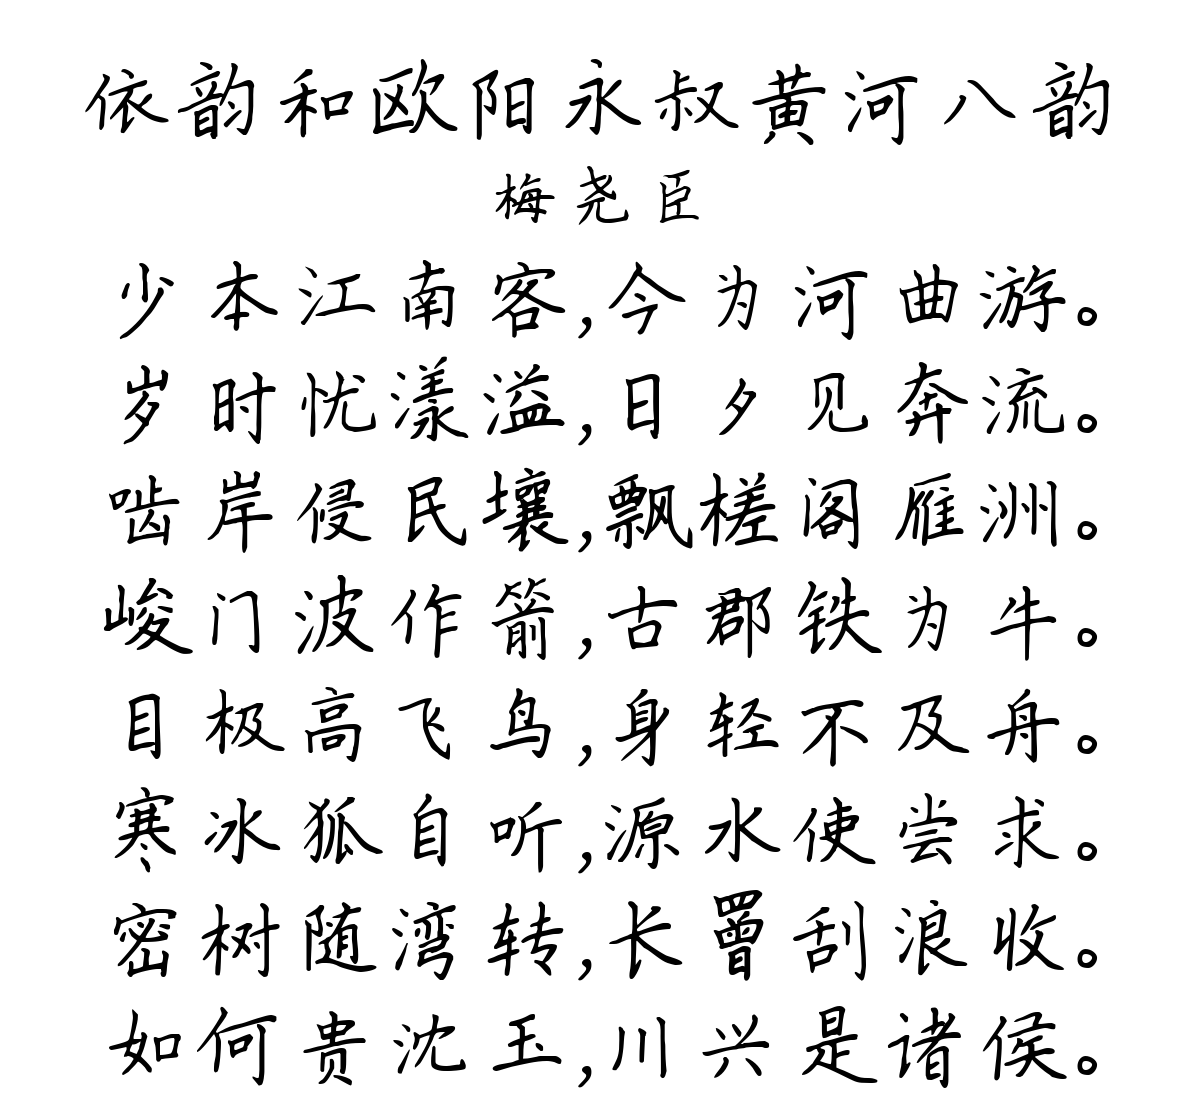 依韵和欧阳永叔黄河八韵
梅尧臣
少本江南客,今为河曲游。
岁时忧漾溢,日夕见奔流。
啮岸侵民壤,飘槎阁雁洲。
峻门波作箭,古郡铁为牛。
目极高飞鸟,身轻不及舟。
寒冰狐自听,源水使尝求。
密树随湾转,长罾刮浪收。
如何贵沈玉,川兴是诸侯。